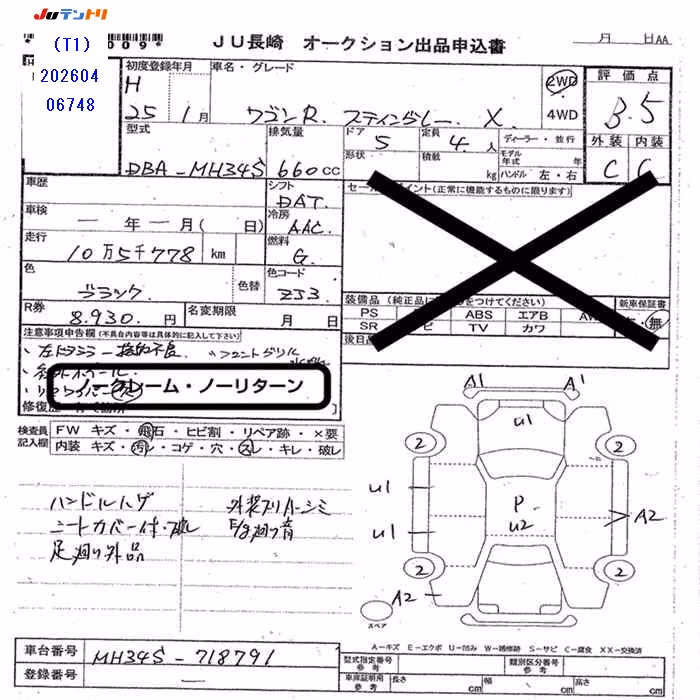 JUテントリ
(T1)
202604
06748
009*
JU長崎 オークション出品申込書
月 日AA
初度登録年月
車名・グレード
2WD
4WD
評価点
H
25 1月
ワゴンR. スティングレー. X.
3.5
型式
排気量
ドア 5
定員 4人
ディーラー・並行
外装 内装
形状
積載 kg
モデル年式 年
ハンドル 左・右
DBA-MH34S
660cc
C C
車歴
シフト
DAT.
セールスポイント(正常に機能するものに限ります)
車検
一年一月( 日)
冷房
AAC.
走行
10万5千778 km
燃料
G.
色
ブラック
色替
色コード
ZJ3
装備品(純正品に をつけてください)
新車保証書
R券
8.930.円
名変期限
月 日
PS ABS エアB AW
SR ビ TV カワ
無
後日品
注意事項申告欄(不具合内容等は具体的に記入して下さい)
左ドアミラー格納不良
ノークレーム・ノーリターン
修復歴
検査員記入欄
FW キズ・飛石・ヒビ割・リペア跡・×要
内装 キズ・汚レ・コゲ・穴・スレ・キレ・破レ
ハンドルハゲ
外装
シートカバー付・破レ
F/8廻り音
足廻り外品
A1 A1
U1
2 2
U1
P
U2
A2
U1
2 2
A2
スペア
A=キズ E=エクボ U=凹み W=補修跡 S=サビ C=腐食 XX=交換済
車台番号
MH34S-718791
型式指定番号 参考
類別区分番号 参考
登録番号
—
車庫証明用 参考
長さ 幅 高さ